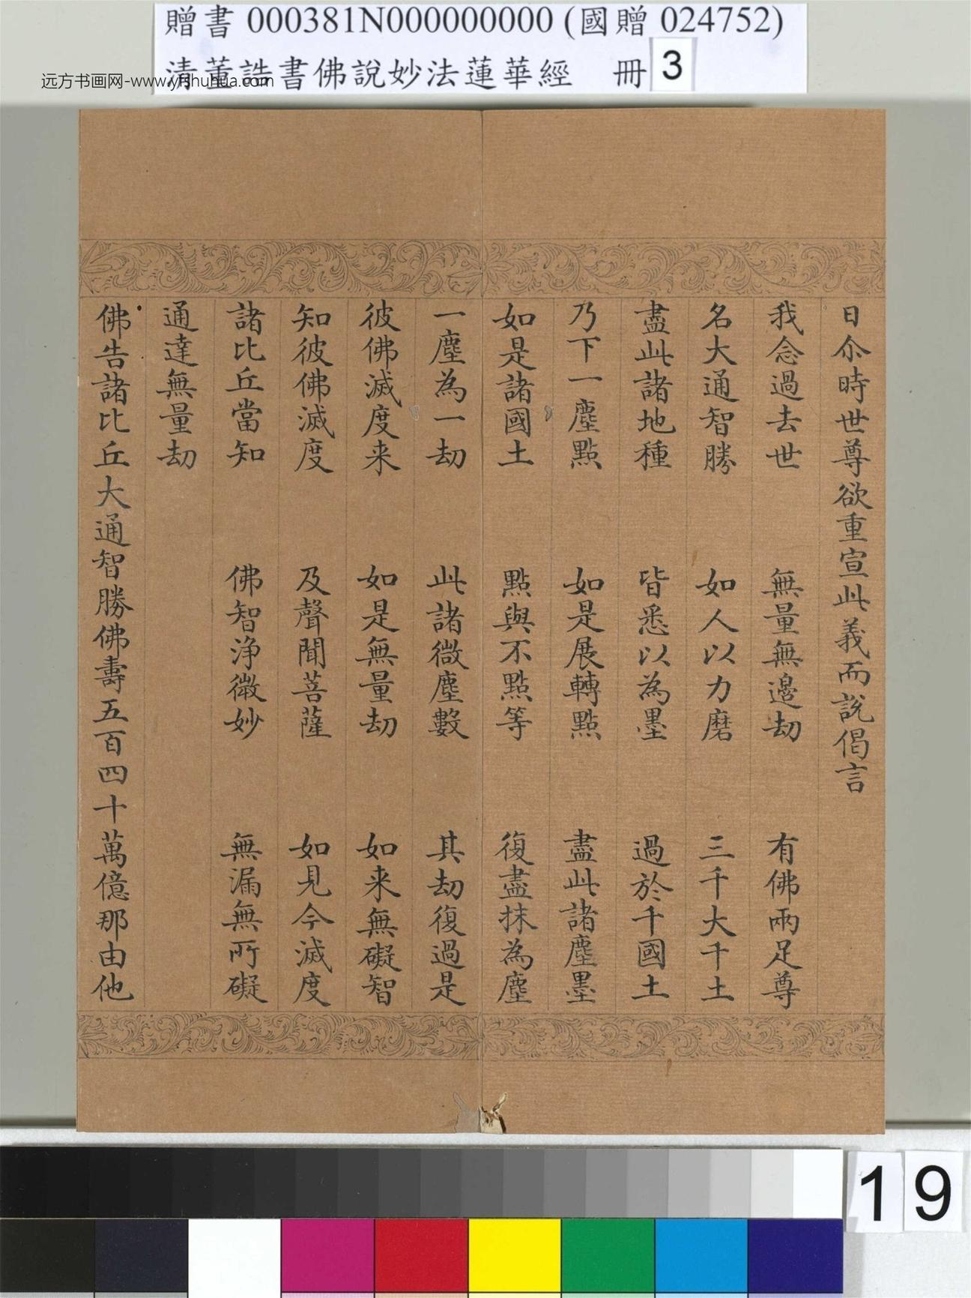 贈書 000381N000000000 (國贈 024752)
清董誥書佛說妙法蓮華經 冊 3
远方书画网-www.yfshuhua.com
日尒時世尊欲重宣此義而說偈言
我念過去世 無量無邊劫 有佛兩足尊
名大通智勝 如人以力磨 三千大千土
盡此諸地種 皆悉以為墨 過於千國土
乃下一塵點 如是展轉點 盡此諸塵墨
如是諸國土 點與不點等 復盡抹為塵
一塵為一劫 此諸微塵數 其劫復過是
彼佛滅度来 如是無量劫 如来無礙智
知彼佛滅度 及聲聞菩薩 如見今滅度
諸比丘當知 佛智淨微妙 無漏無所礙
通達無量劫
佛告諸比丘大通智勝佛壽五百四十萬億那由他
19